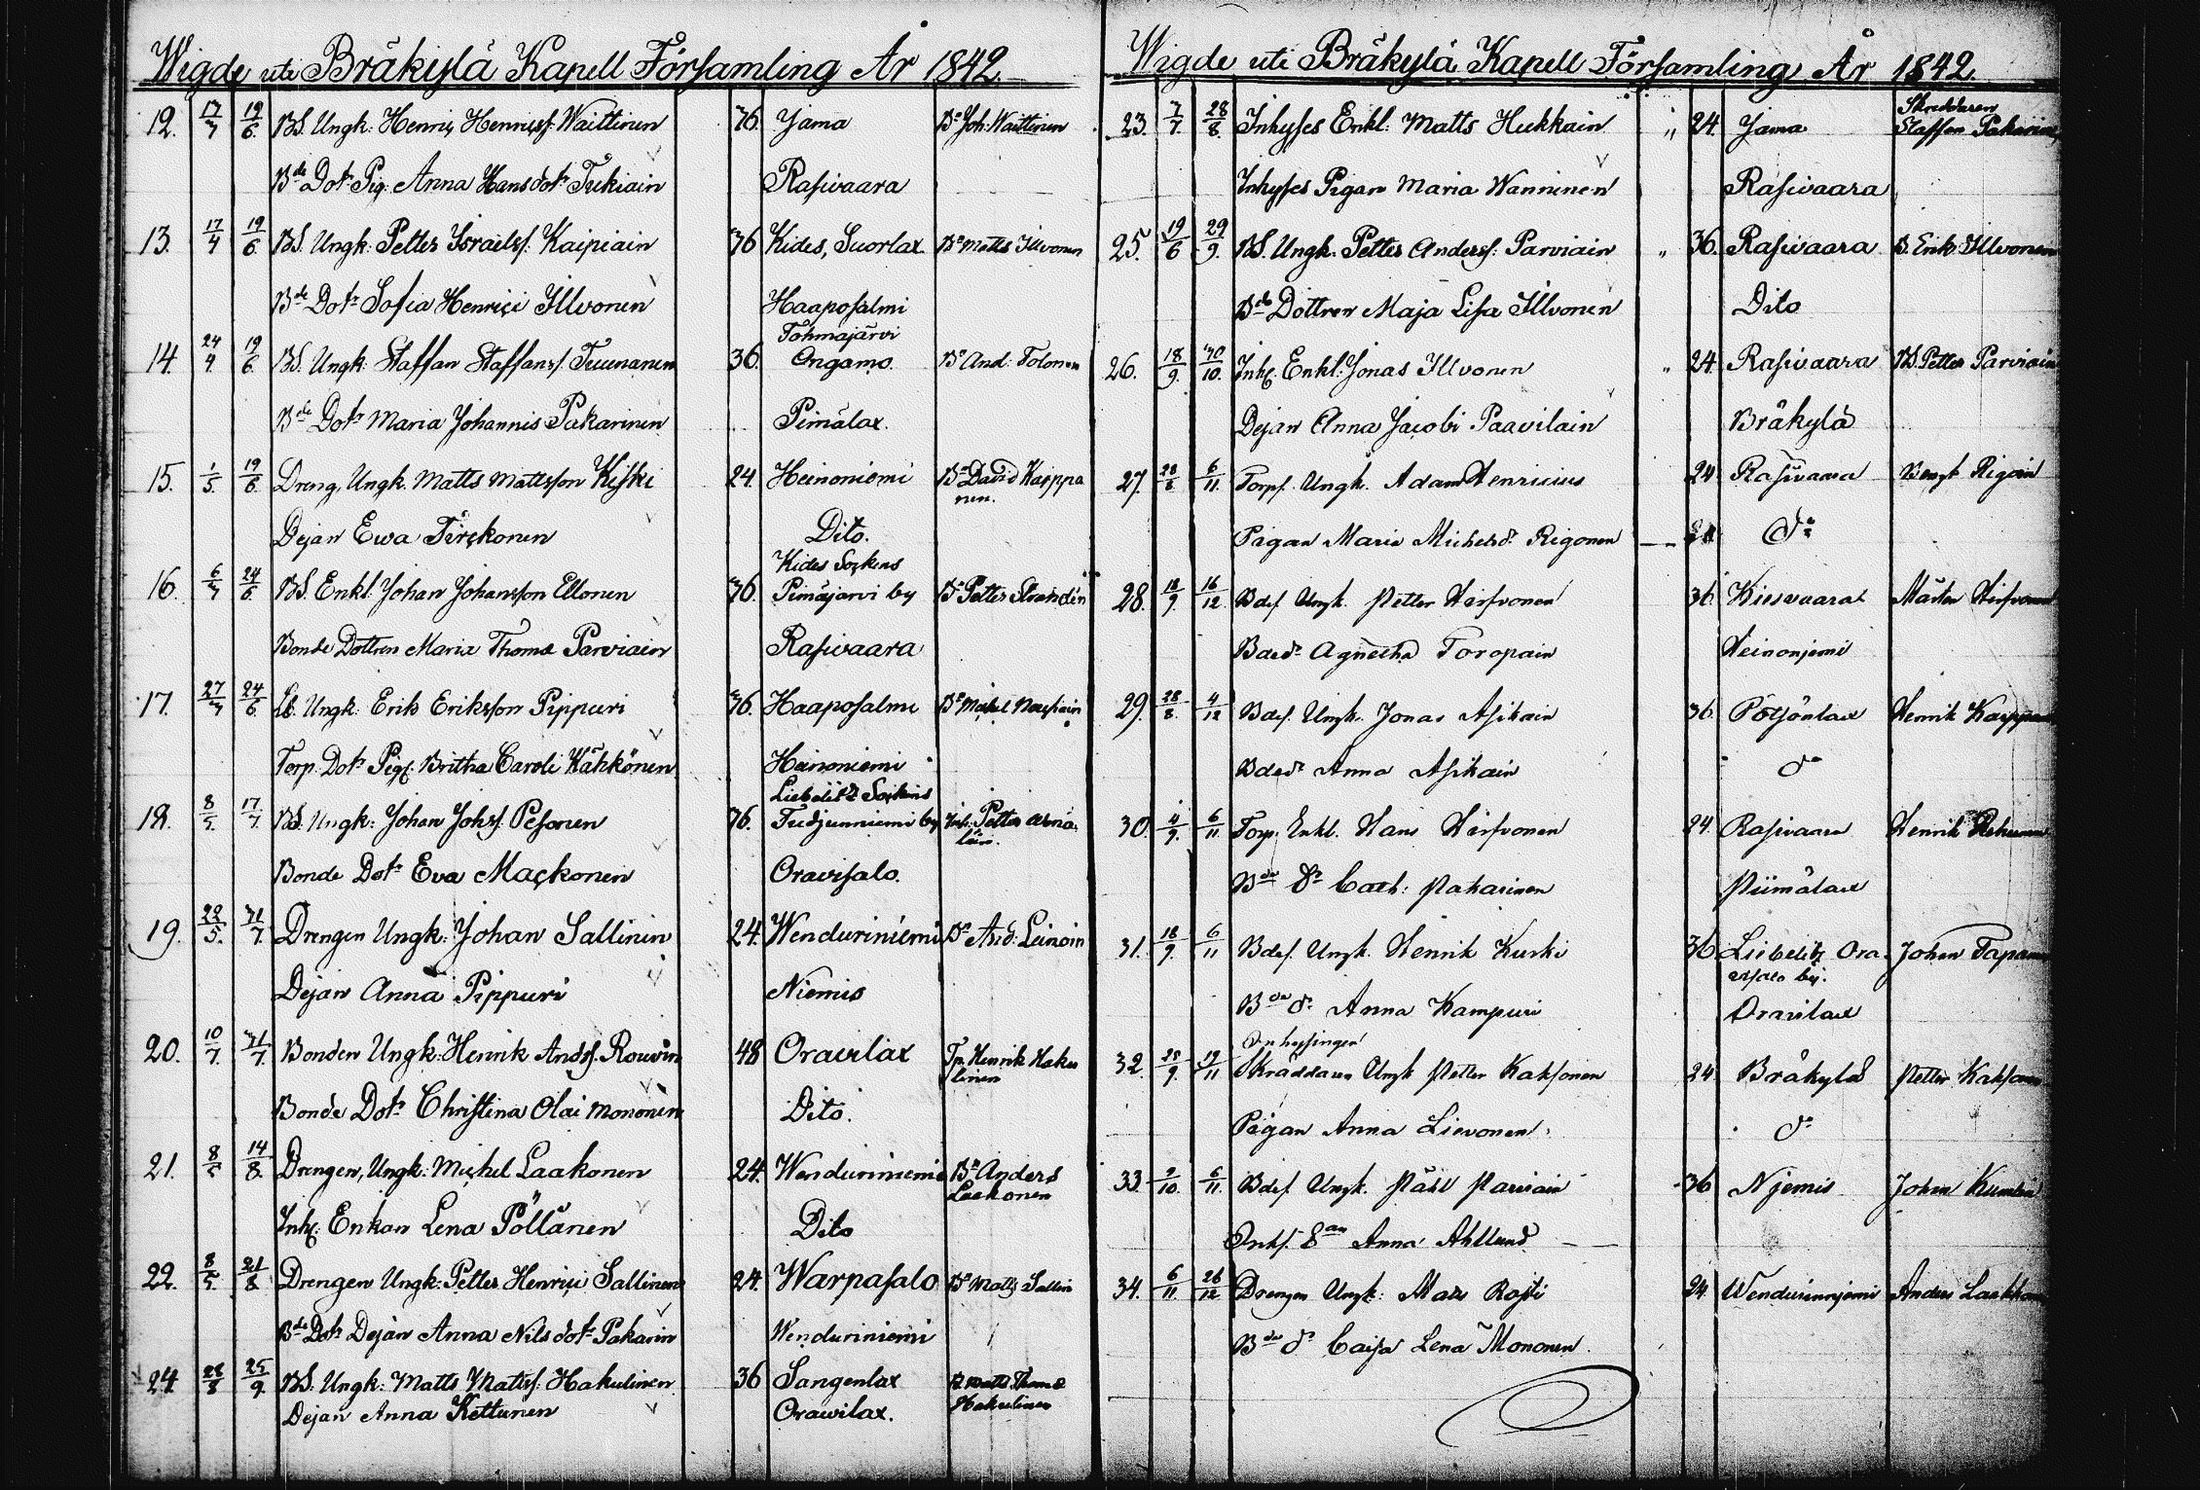 Wigde uti Bräkylä Kapell Församling År 1842.
12. 17/4 19/6 BS. Ungk: Henric Henricsf. Waittinen 36 Jama Bd Joh: Waittinen
Bde Dotr Pig. Anna Hansdotr Tukiain Rasivaara
13. 17/4 19/6 BS. Ungk: Petter Israelsf. Kaipiain 36 Kides, Suorlax Bd Matts Illvonen
Bde Dotr Sofia Henrici Illvonen Haaposalmi
14. 24/4 19/6 BS. Ungk: Staffan Staffansf. Tuunanen 36. Tohmajärvi Ongamo. Bd And. Tolonen
Bde Dotr Maria Johannis Pakarinen Pimälax.
15. 1/5. 19/6 Dreng, Ungk. Matts Mattsson Kiski 24. Heinoniemi Bd David Kaippanen.
Dejan Ewa Tirckonen Dito.
16. 6/ 24/6 BS. Enkl. Johan Johansson Ellonen 36. Kides Sockens Pimäjärvi by Bd Petter
Bonde Dottren Maria Thomæ Parviain Rasivaara
17. 27/ 24/6 Ungk: Erik Eriksson Pippuri 36. Haaposalmi Bd Mickel
Torp. Dotr Pig. Britha Caroli Kähkönen Heinoniemi
18. 8/5. 17/7. BS. Ungk: Johan Johsf. Pesonen 36. Liebelitz Sockens by Petter
Bonde Dotr Eva Mackonen Oravisalo.
19. 22/5. 31/7. Drengen Ungk: Johan Sallinen 24. Wenduriniemi Bd And: Leinoin
Dejan Anna Pippuri Niemis
20. 10/7. 31/7. Bonden Ungk: Henrik Andsf. Rouvin 48 Oravilax Tp. Henrik Hakulinen
Bonde Dotr Christina Olai Mononen Dito.
21. 8/5 14/8. Drengen, Ungk: Michel Laakonen 24. Wenduriniemi Bd Anders Laakonen
Inhs. Enkan Lena Pöllänen Dito
22. 8/5. 21/8 Drengen Ungk: Petter Henrici Sallinen 24. Warpasalo Bd Matts Sallin
Bde Dotr Dejan Anna Nilsdotr Pakarin Wenduriniemi
24 28/8 25/9. BS. Ungk: Matts Mattsf. Hakulinen 36 Sangenlax Bd Matts Thomæ Hakulinen
Dejan Anna Kettunen Oravilax.
Wigde uti Bräkylä Kapell Församling År 1842.
23. 7/7. 28/8. Inhyses Enkl: Matts Hukkain " 24. Jama Skreddaren Staffan Pakarinen
Inhyses Pigan Maria Wanninen Rasivaara
25. 19/6 29/9. BS. Ungk: Petter Andersf. Parviain " 36. Rasivaara B. Erik Illvonen
Bde Dottren Maja Lisa Illvonen Dito
26. 18/9. 30/10. Inhs. Enkl. Jonas Illvonen " 24. Rasivaara BS. Petter Parviain
Dejan Anna Jacobi Paavilain Bräkylä
27. 28/8 6/11. Torps. Ungk. Adam Henricius 24 Rasivaara Bengt Rigoin
Pigan Maria Michelsdr Rigonen do
28. 18/9. 16/12. Bdes. Ungk. Petter Hirfvonen 36 Kiesvaara Mårten Hirfvonen
Bdedr Agnetha Toropain Heinonjemi
29. 28/8. 4/12 Bdes. Ungk. Jonas Asikain 36 Pötsönlax Henrik Kaippan
Bdedr Anna Asikain do
30. 4/9. 6/11 Torp. Enkl. Hans Hirfvonen 24. Rasivaara Henrik
Bde dr Cath: Pakarinen Piimälax
31. 18/9. 6/11 Bdes. Ungk. Henrik Kurki 36 Liebelitz Oravisalo by. Johan Tapan
Bde dr Anna Kampuri Oravilax
32. 25/9. 19/11 Inhysingen Skräddaren Ungk Petter Kaksonen 24 Bråkylä Petter Kakson
Pigan Anna Lievonen do
33. 2/10. 6/11. Bdes. Ungk. Påhl Parviain 36 Njemis Johan
Inhs. Anna Ahllund
34. 6/11. 26/12 Drengen Ungk: Mats Rosti 24 Wendurinnjemi Anders Laakkon
Bde dr Caisa Lena Mononen.